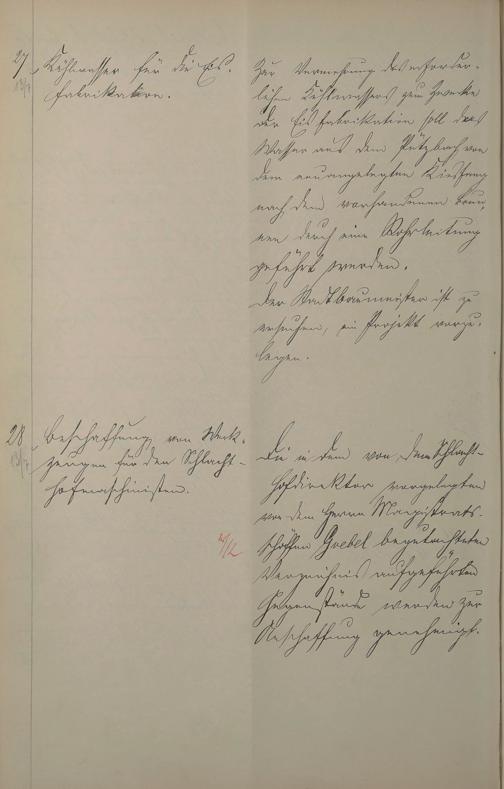 27
Kühlwasser für die Eis-
fabrikation.
Zur Vermehrung des erforder-
lichen Kühlwassers zum Zwecke
der Eisfabrikation soll das
Wasser aus dem Pützbach von
dem neuangelegten Kiesfang
nach dem vorhandenen Brun-
nen durch eine Rohrleitung
geführt werden.
Der Stadtbaumeister ist zu
ersuchen, ein Projekt vorzu-
legen.
28
Beschaffung von Werk-
zeugen für den Schlacht-
hofmaschinisten.
Die in dem von dem Schlacht-
hofdirektor vorgelegten
von dem Herrn Magistrats-
schöffen Goebel begutachteten
Verzeichnis aufgeführten
Gegenstände werden zur
Beschaffung genehmigt.